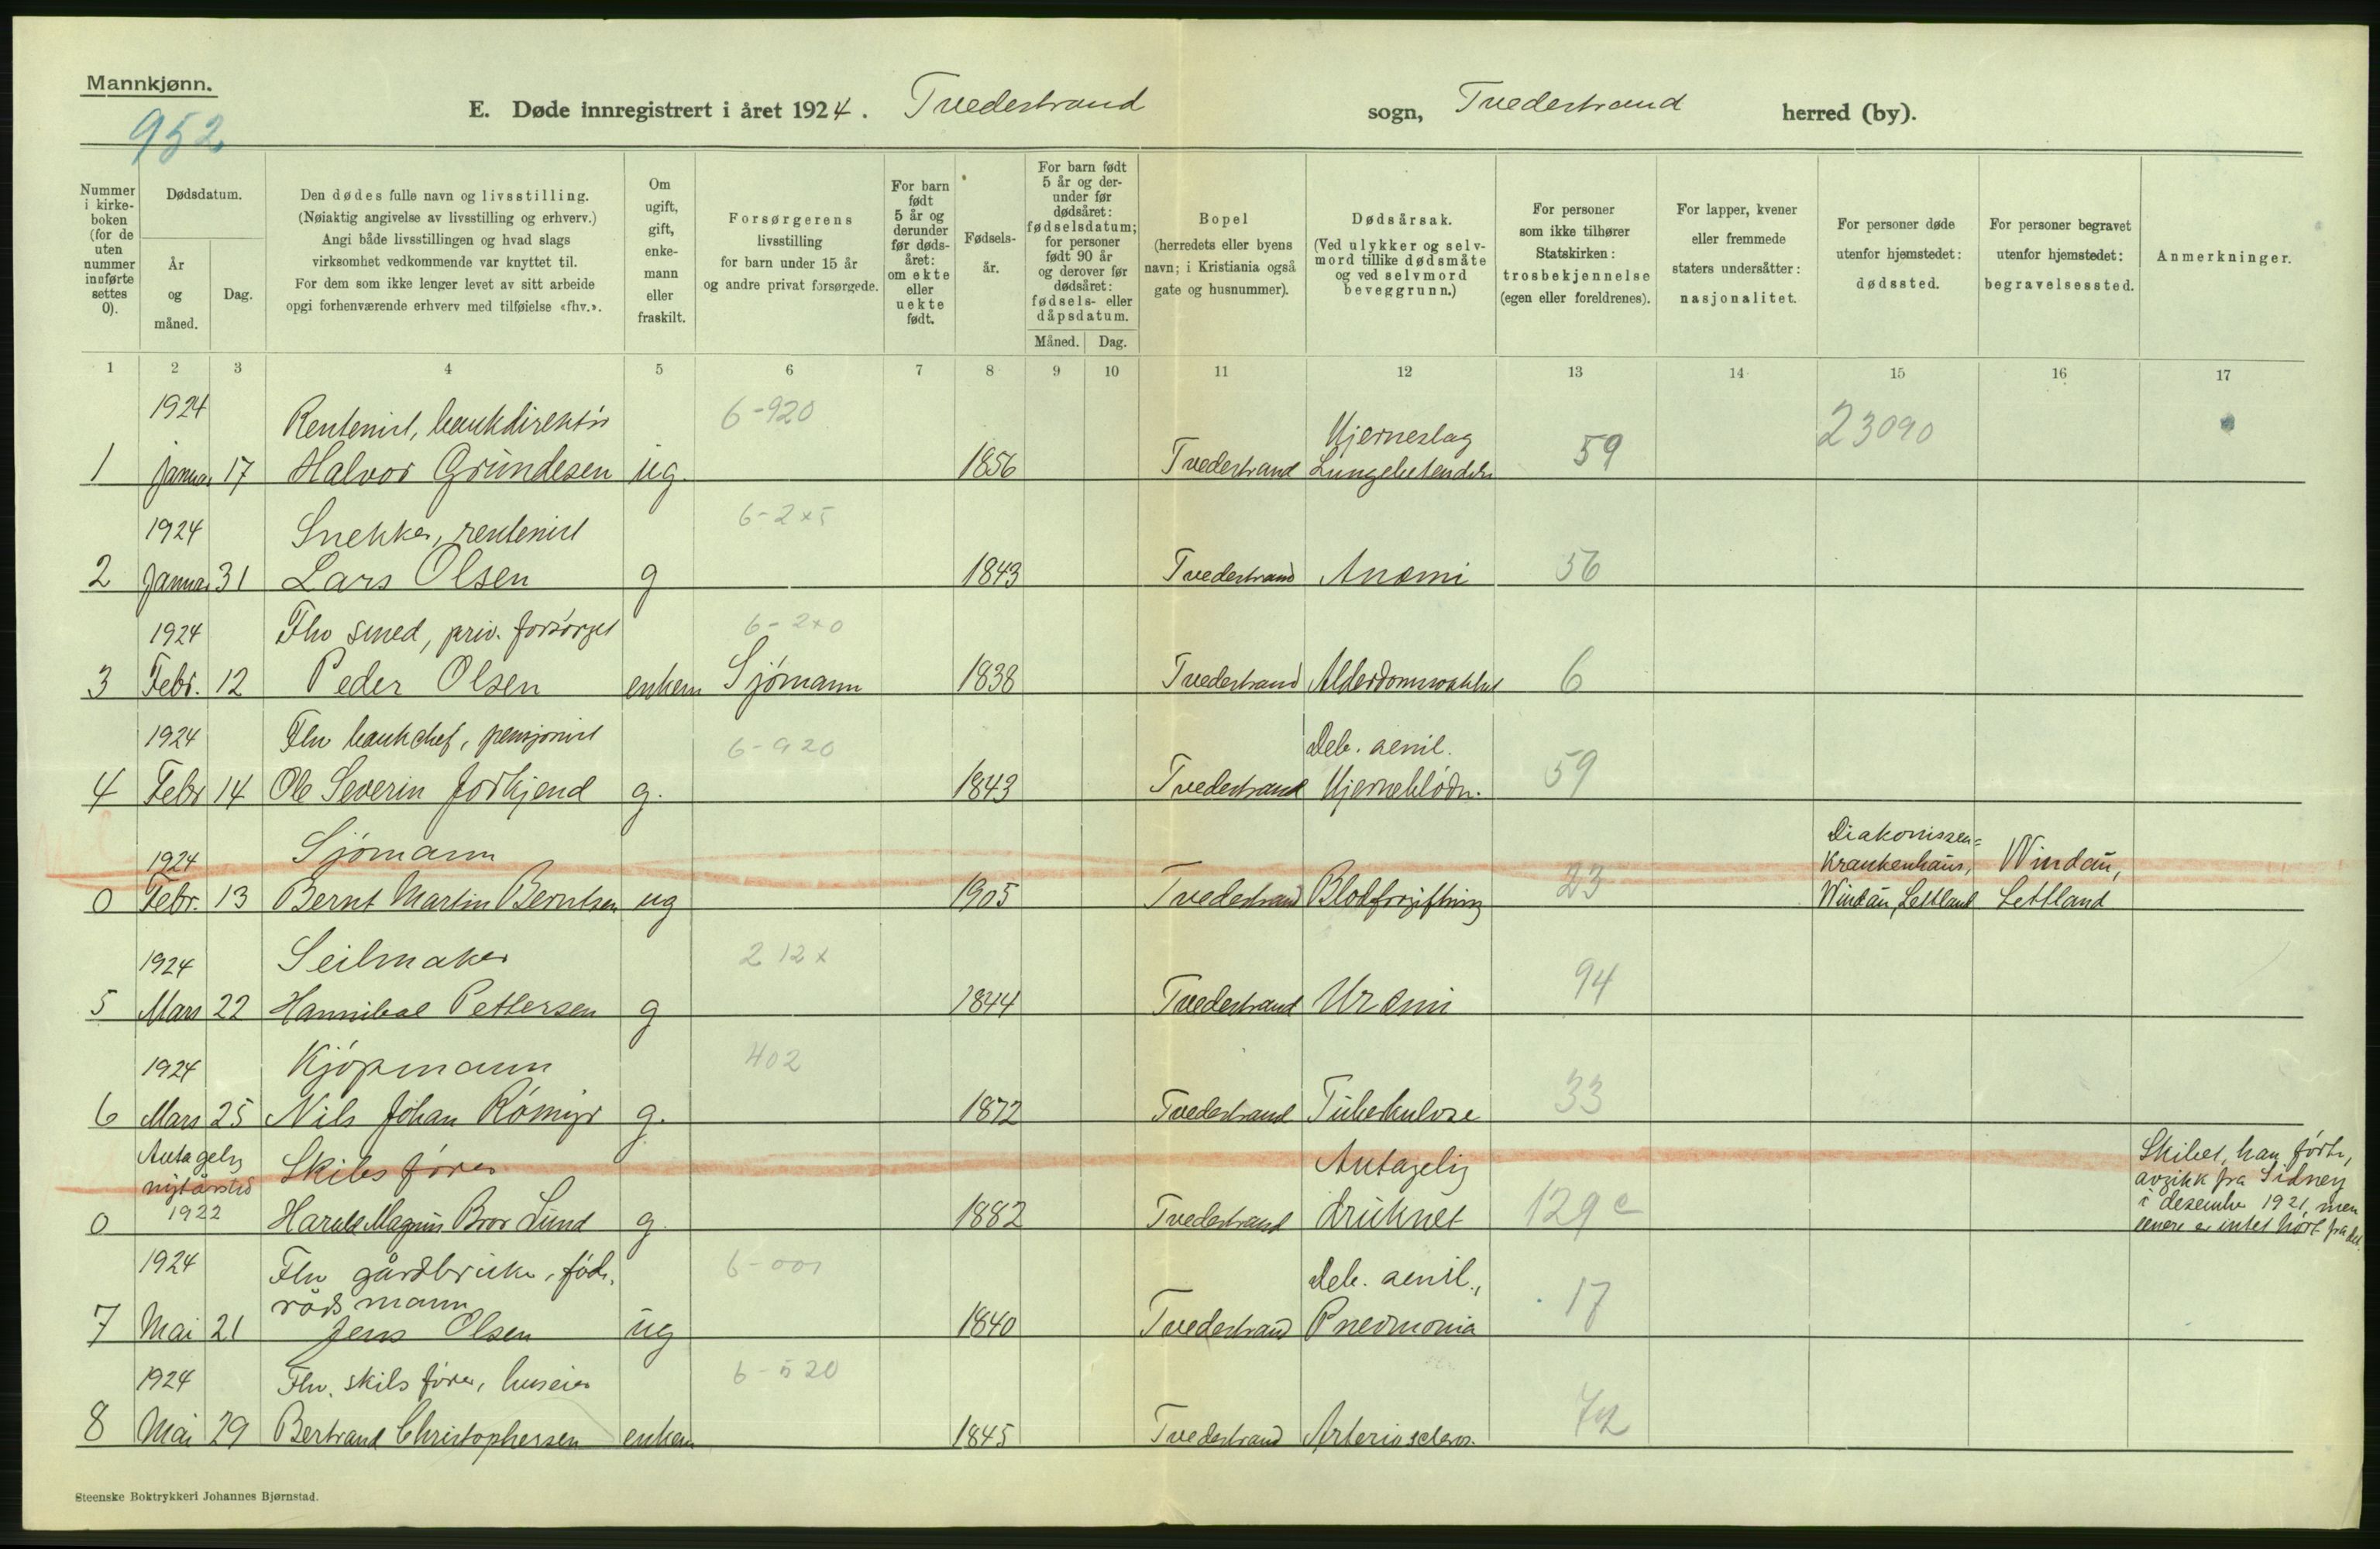 Mannkjønn.
952.
E. Døde innregistrert i året 1924. Tvedestrand sogn, Tvedestrand herred (by).
Nummer i kirkeboken (for de uten nummer innførte settes 0).
Dødsdatum.
År og måned.
Dag.
Den dødes fulle navn og livsstilling.
(Nøiaktig angivelse av livsstilling og erhverv.)
Angi både livsstillingen og hvad slags
virksomhet vedkommende var knyttet til.
For dem som ikke lenger levet av sitt arbeide
opgi forhenværende erhverv med tilføielse «fhv.».
Om ugift, gift, enkemann eller fraskilt.
Forsørgerens
livsstilling
for barn under 15 år
og andre privat forsørgede.
For barn født 5 år og derunder før dødsåret: om ekte eller uekte født.
Fødselsår.
For barn født 5 år og derunder før dødsåret: fødselsdatum; for personer født 90 år og derover før dødsåret: fødsels- eller dåpsdatum.
Måned. Dag.
Bopel
(herredets eller byens
navn; i Kristiania også
gate og husnummer).
Dødsårsak.
(Ved ulykker og selv-
mord tillike dødsmåte
og ved selvmord
beveggrunn.)
For personer
som ikke tilhører
Statskirken:
trosbekjennelse
(egen eller foreldrenes).
For lapper, kvener
eller fremmede
staters undersåtter:
nasjonalitet.
For personer døde
utenfor hjemstedet:
dødssted.
For personer begravet
utenfor hjemstedet:
begravelsessted.
Anmerkninger.
1 2 3 4 5 6 7 8 9 10 11 12 13 14 15 16 17
1924 Rentenist, bankdirektør 6-920 Hjerneslag 23090
1 Januar 17 Halvor Grundesen ug. 1856 Tvedestrand 59
1924 Snekker, rentenist 6-2x5
2 Januar 31 Lars Olsen g 1843 Tvedestrand Anæmi 56
1924 Fhv smed, priv. forsørget 6-2x0
3 Febr. 12 Peder Olsen enkem Sjømann 1838 Tvedestrand 6
1924 Fhv bankchef, pensjonist 6-920 Deb. senil.
4 Febr 14 Ole Severin g. 1843 Tvedestrand Hjerneblødn. 59
1924 Sjømann Diakonissen=
Krankenhaus, Windau,
0 Febr. 13 Bernt Martin Berntsen ug 1905 Tvedestrand Blodforgiftning 23 Windau, Lettland Lettland
1924 Seilmaker 212x
5 Mars 22 Hannibal Pettersen g 1844 Tvedestrand Uræmi 94
1924 Kjøpmann 402
6 Mars 25 Nils Johan Rømyr g. 1872 Tvedestrand Tuberkulose 33
Antagelig Skibsfører Antagelig Skibet, han førte,
nytårstid avgikk fra Sidney
1922 i desember 1921, men
0 Harald Magnus Bror Lund g. 1882 Tvedestrand druknet 129c senere er intet hørt fra det.
1924 Fhv gårdbruker, føde, 6-001 Deb. senil.,
rådsmann
7 Mai 21 Jens Olsen ug 1840 Tvedestrand Pneumonia 17
1924 Fhv. skibsfører, huseier 6-520
8 Mai 29 Bertrand Christophersen enkem 1845 Tvedestrand Arterioscleros. 72
Steenske Boktrykkeri Johannes Bjørnstad.